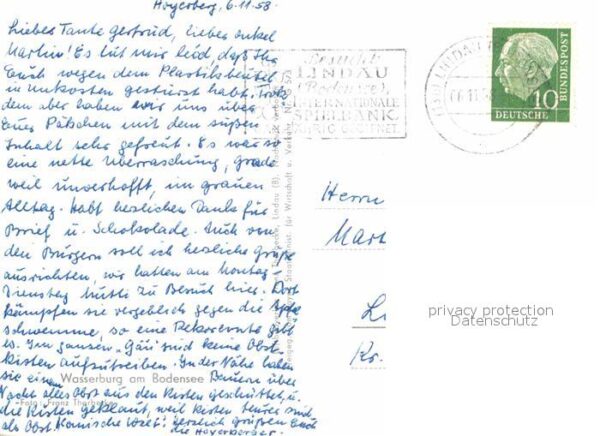 Hoyerberg, 6.11.58.
Liebes Tante Gertrud, lieber Onkel
Martin! Es tut mir leid, daß Ihr
Euch wegen dem Plastikbeutel
in Unkosten gestürzt habt. Trotz
dem aber haben wir uns über
Euer Pätschen mit dem süßen
Inhalt sehr gefreut. Es war so
eine nette Überraschung, grade
weil unverhofft, im grauen
Alltag. Habt herzlichen Dank für
Brief u. Schokolade. Auch von
den Bürgern soll ich herzliche Grüße
ausrichten, wir hatten am Montag-
Dienstag Mutti zu Besuch hier. Dort
kämpfen sie vergeblich gegen die
schwemme, so eine Rekordernte gibt
es. Im ganzen "Gäu" sind keine Obst-
kisten aufzutreiben. In der Nähe haben
sie einem Bauern über
Nacht alles Obst aus den Kisten geschüttet, u.
die Kisten geklaut, weil Kisten teurer sind
als Obst. Komische Welt! Herzlich grüßen Euch
die Hoyerberger.
Wasserburg am Bodensee
Foto: Franz Thorbecke
Besucht
LINDAU
(Bodensee)
INTERNATIONALE
SPIELBANK
GANZJÄHRIG GEÖFFNET
LINDAU
06.11.58
10
DEUTSCHE
BUNDESPOST
Herrn
Mart
L
Kr.
privacy protection
Datenschutz